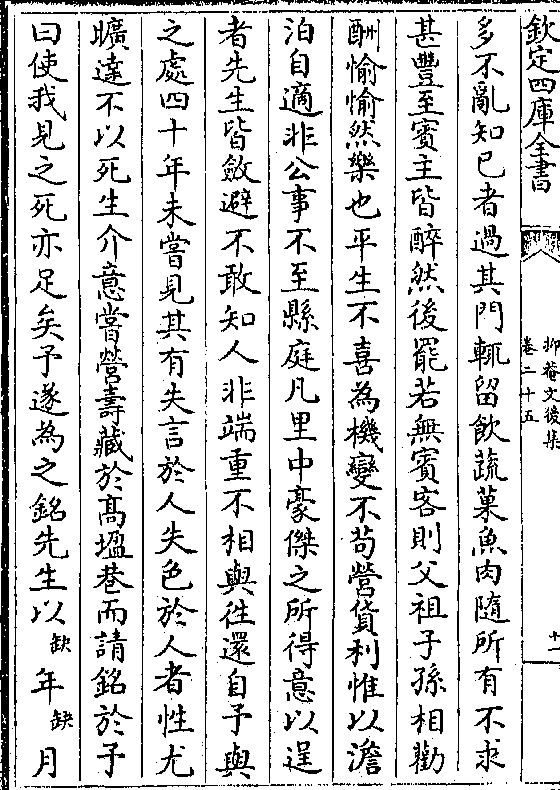 欽定四庫全書
抑菴文後集
卷二十五
十一
多不亂知已者過其門輒留飲蔬菓魚肉隨所有不求
甚豐至賓主皆醉然後罷若無賓客則父祖子孫相勸
酬愉愉然樂也平生不喜為機變不苟營貨利惟以澹
泊自適非公事不至縣庭凡里中豪傑之所得意以逞
者先生皆斂避不敢知人非端重不相與徃還自予與
之處四十年未嘗見其有失言於人失色於人者性尤
曠達不以死生介意嘗營壽藏於髙塭巷而請銘於予
曰使我見之死亦足矣予遂為之銘先生以缺年缺月